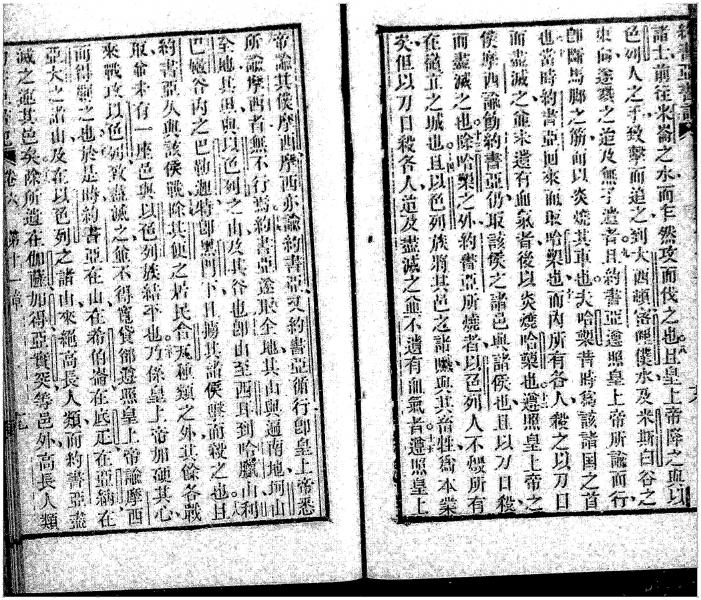 諸士前往米崙之水而乍然攻而伐之也且皇上帝降之與以
色列人之手致擊而追之到大西頓密哩僕水及米斯白谷之
東向遂戮之迨及無孑遺者且約書亞遵照皇上帝所諭而行
卽斷馬腳之筋而以炎燒其車也夫哈槊昔時爲該諸國之首
也當時約書亞回來而取哈槊也而內所有各人殺之以刀口
而盡滅之並未遺有血氣者後以炎燒哈槊也遵照皇上帝之
僕摩西諭飭約書亞仍取該侯之諸邑與諸侯也且以刀口殺
而盡滅之也除哈槊之外約書亞所燒者以色列人不燬所有
在徽立之城也且以色列族將其邑之諸贓與其畜牲爲本業
矣但以刀口殺各人迨及盡滅之並不遺有血氣者遵照皇上
帝諭其僕摩西摩西亦諭約書亞又約書亞循行卽皇上帝悉
所諭摩西者無不行焉約書亞遂取全地其山與通南地坷山
全地其田與以色列之山及其谷也卽由至西耳到哈臘山利
巴嫩谷內之巴勒迦特卽黑門下且擄其諸侯擊而殺之也且
約書亞久與該侯戰除其之居民合種類之外其餘各戰
取並未有一座邑與以色列族結平也乃係皇上帝加硬其心
來戰攻以色列致盡滅之並不得寬貸卽遵照皇上帝諭摩西
而得之也於是時約書亞在山在希伯崙在底疋在亞納在
亞大之諸山及在以色列之諸山來絕高長人類而約書亞盡
滅之連其邑矣除所遺在伽薩加得亞實突等邑外高長人類
卷六 第十一章